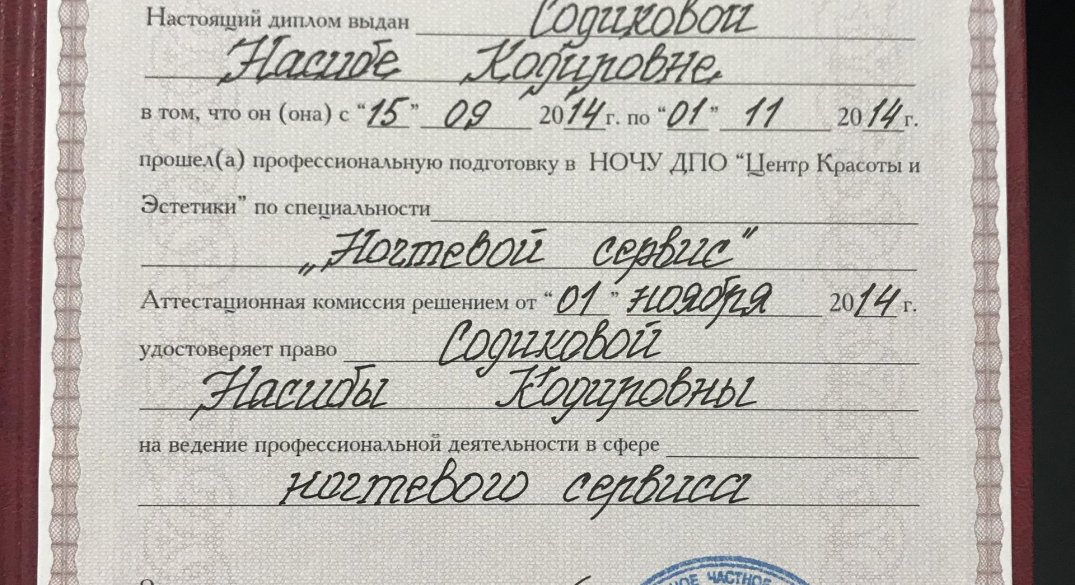 Настоящий диплом выдан Содиковой
Насибе Кодировне
в том, что он (она) с “15” 09 2014 г. по “01” 11 2014 г.
прошел(а) профессиональную подготовку в НОЧУ ДПО “Центр Красоты и
Эстетики” по специальности
„Ногтевой сервис”
Аттестационная комиссия решением от “01” ноября 2014 г.
удостоверяет право Содиковой
Насибы Кодировны
на ведение профессиональной деятельности в сфере
ногтевого сервиса
ЧАСТНОЕ